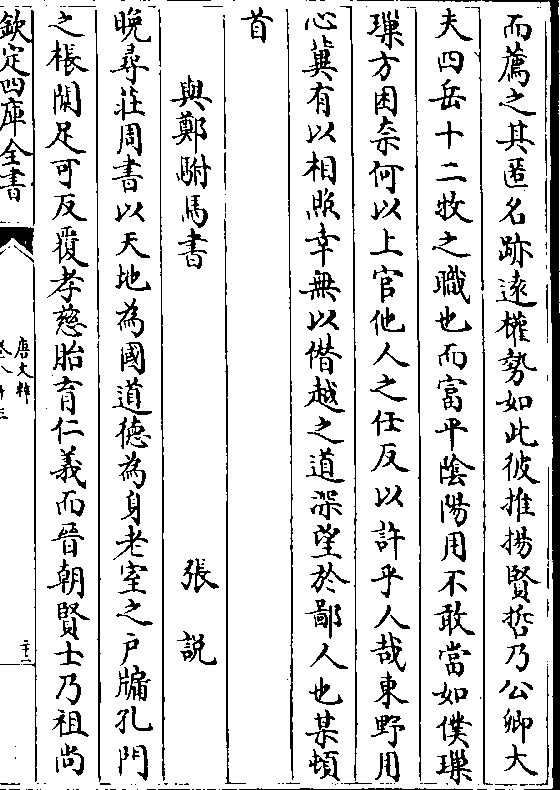 而薦之其匿名跡遠權勢如此彼推揚賢哲乃公卿大
夫四岳十二牧之職也而富平陰陽用不敢當如僕璅
璅方困柰何以上官他人之任反以許乎人哉東野用
心冀有以相照幸無以僭越之道深望於鄙人也某頓
首
與鄭駙馬書
張說
晚尋莊周書以天地為國道德為身老室之戶牖孔門
之棖闑足可反覆孝慈胎育仁義而晉朝賢士乃祖尚
欽定四庫全書
唐文粹